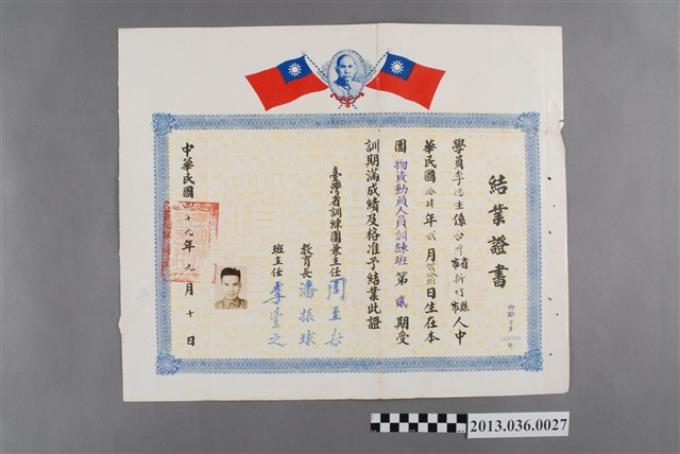 結業證書
學員李德生係台灣省新竹縣市人中
華民國拾肆年貳月 日生在本
團物資動員人員訓練班第貳期受
訓期滿成績及格准予結業此證
臺灣省訓練團兼主任周至柔
教育長潘振球
班主任李
中華民國四十九年九月十日
2013.036.0027